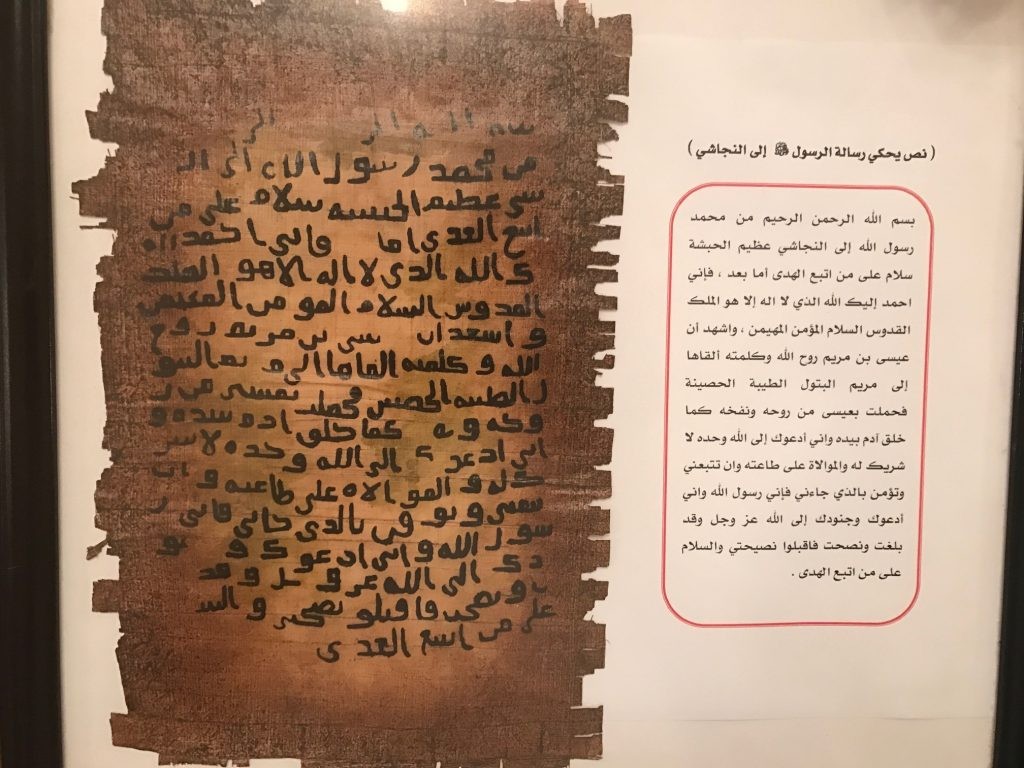 ( نص يحكي رسالة الرسول ﷺ إلى النجاشي )
بسم الله الرحمن الرحيم من محمد
رسول الله إلى النجاشي عظيم الحبشة
سلام على من اتبع الهدى أما بعد ، فإني
احمد إليك الله الذي لا اله إلا هو الملك
القدوس السلام المؤمن المهيمن ، واشهد أن
عيسى بن مريم روح الله وكلمته ألقاها
إلى مريم البتول الطيبة الحصينة
فحملت بعيسى من روحه ونفخه كما
خلق آدم بيده واني أدعوك إلى الله وحده لا
شريك له والموالاة على طاعته وان تتبعني
وتؤمن بالذي جاءني فإني رسول الله واني
أدعوك وجنودك إلى الله عز وجل وقد
بلغت ونصحت فاقبلوا نصيحتي والسلام
على من اتبع الهدى .
من محمد رسول الله الى الـ
سى عظيم الحبشه سلام على من
اتبع الهدى اما فانى احمد اليه
ك الله الذى لا اله الا هو الملك
القدوس السلام المومن المهيمن
و اشهد ان عيسى بن مريم روح
الله و كلمته القاها الى مريم البتو
ل الطيبه الحصينه فحملت بعيسى من ر
وحه و كما خلق ادم بيده و
انى ادعوك الى الله وحده لا شر
يك له و الموالاه على طاعته و ان
تتبعنى و تومن بالذى جانى فانى ر
سول الله و انى ادعوك و جنو
دك الى الله عز و جل و قد
بلغت و نصحت فاقبلو نصحى و السلا
على من اتبع الهدى